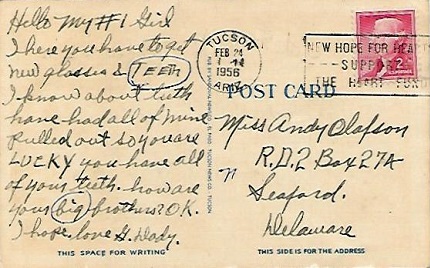 Hello My #1 Girl
I here you have to get
new glasses & TEETH
I know about teeth
have had all of mine
Pulled out so you are
LUCKY you have all
of your teeth. how are
your big brothers? O.K.
I hope. love G. Dady.
THIS SPACE FOR WRITING
TUCSON
FEB 24
1956
ARIZ.
NEW HOPE FOR HEART
SUPPORT
THE HEART FUND
POST CARD
Miss Andy Olafson
R.D.2 Box 27A
Seaford.
Delaware
THIS SIDE IS FOR THE ADDRESS